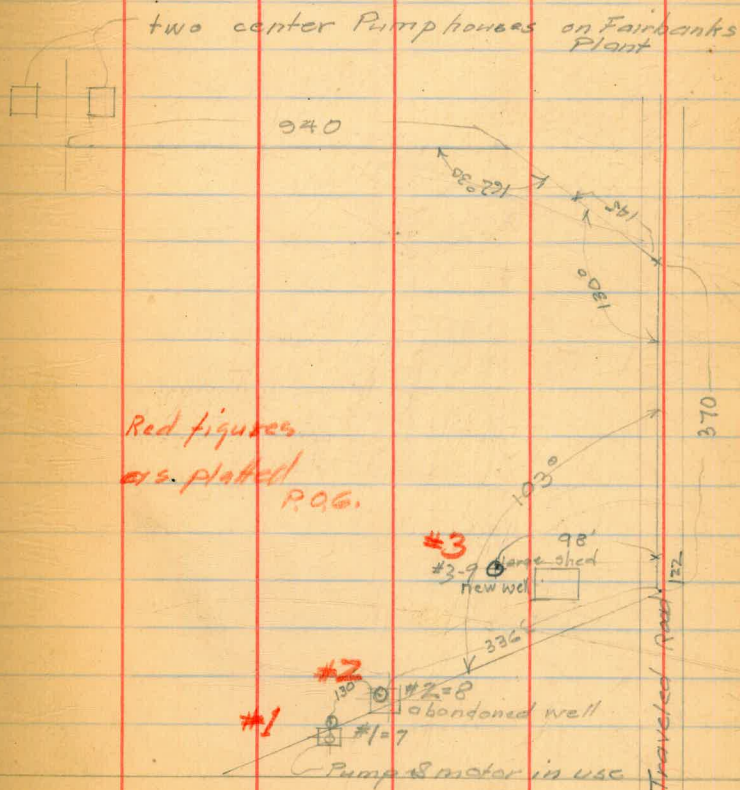 two center Pumphouses on Fairbanks
Plant
940
162°30
195'
130°
370
Red figures
as. platted
P.O.G.
103°
#3
98'
#3-9 large shed
new well
122
336'
#2
130
#2=8
abandoned well
#1
#1=7
Pump & motor in use
Traveled Road